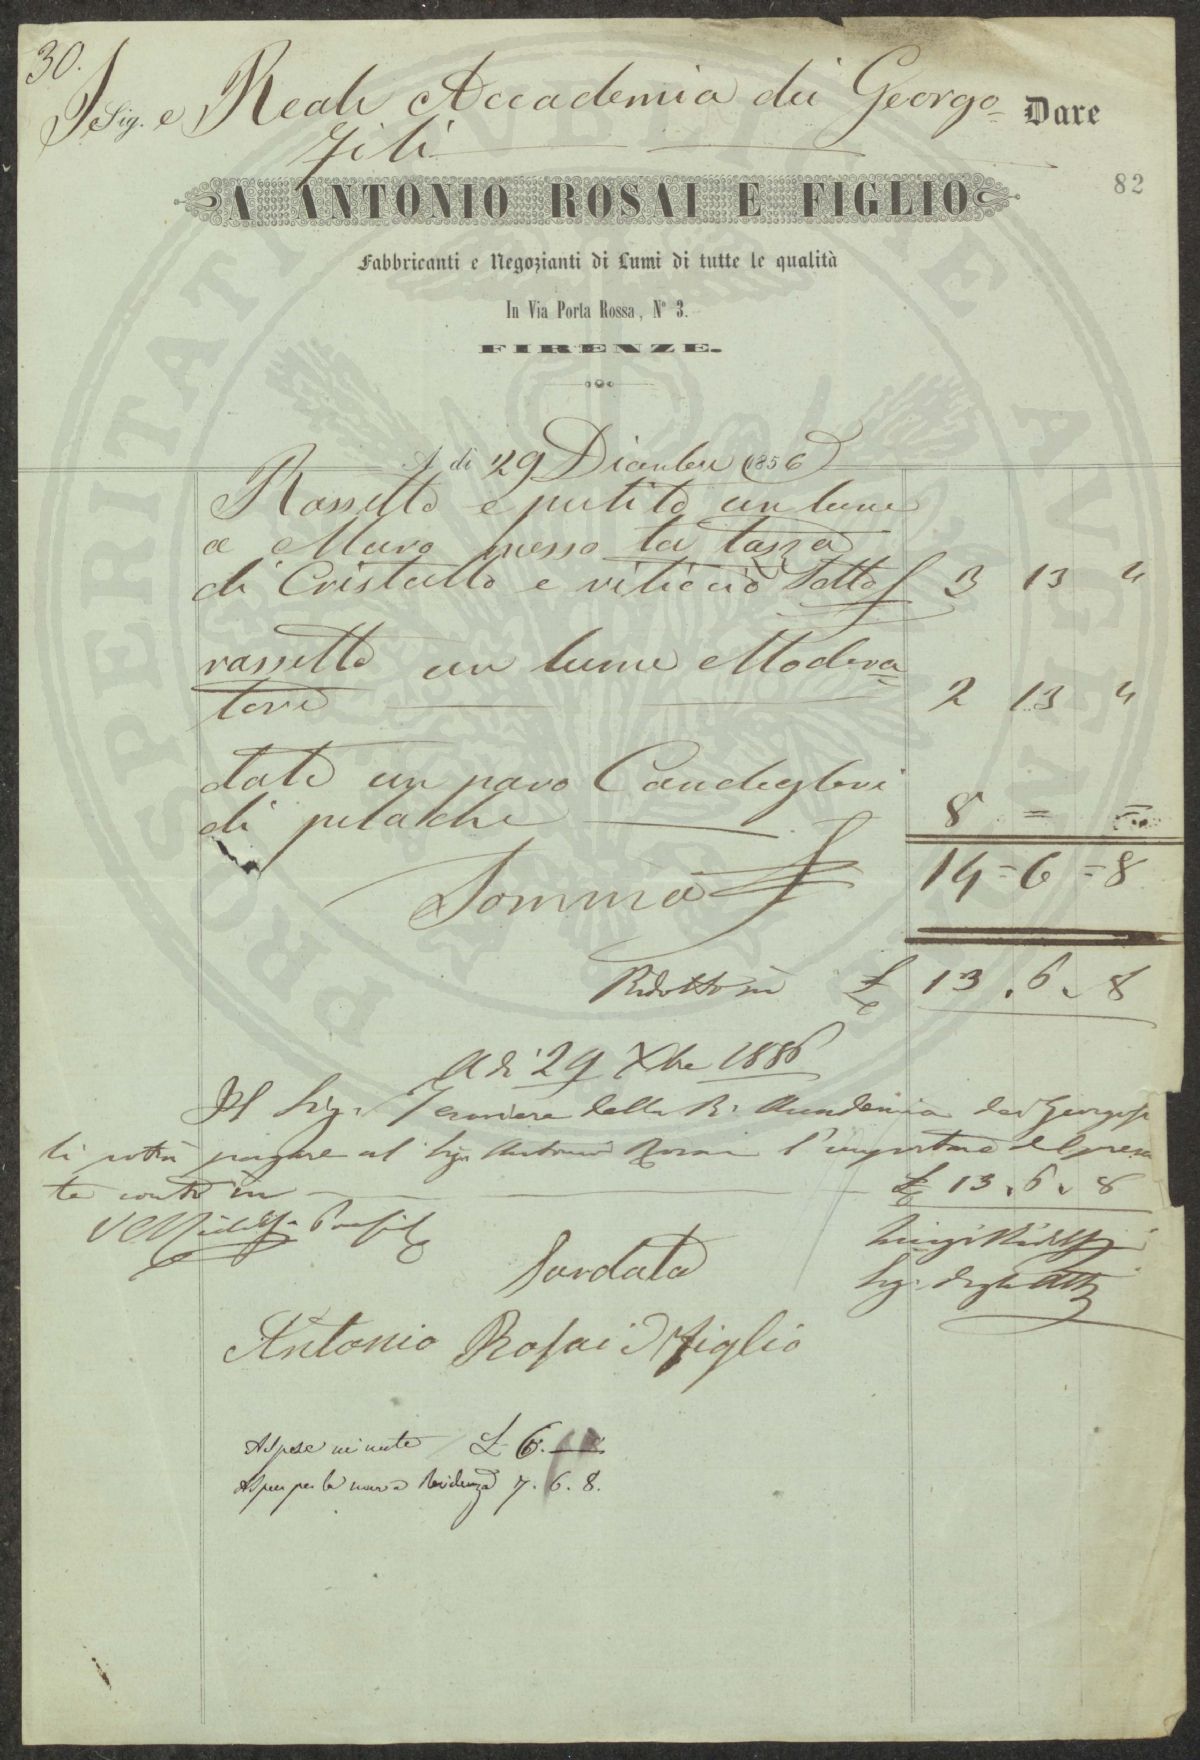 30.
Sig. e Reale Accademia dei Georgo= Dare
fili
A ANTONIO ROSAI E FIGLIO
82
Fabbricanti e Negozianti di Lumi di tutte le qualità
In Via Porta Rossa, N° 3.
FIRENZE.
A dì 29 Dicembre 1856
Rassetto e pulito un lume
a Muro messo la tazza
di Cristallo e viticcio Sotto £ 3 13 4
rassetto un lume Modera=
tore 2 13 4
dato un paro Candeglieri
di pelacche 8 = =
Somma £ 14=6=8
Ridotto in £ 13.6.8
A dì 29 Xbre 1886
Il Sig. Tesoriere della R. Accademia dei Georgofi
li potrà pagare al Sig. Antonio Rosai l'importare del presen
te conto in £ 13.6.8
V
Luigi Ridolfi
Seg. degli Atti
Saldato
Antonio Rosai e Figlio
A spese minute £ 6.
A spese per la nuova Residenza 7.6.8.
PROSPERITATI PVBLICAE AVGENDAE